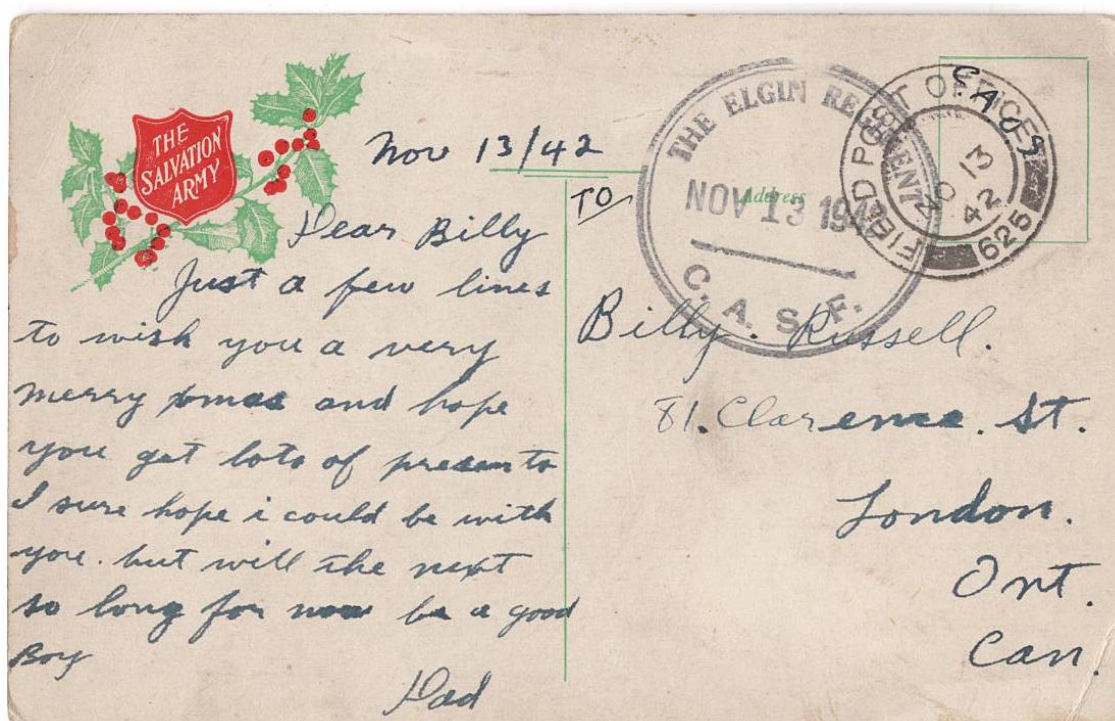 THE
SALVATION
ARMY
Nov 13/42
Dear Billy
Just a few lines
to wish you a very
merry xmas and hope
you get lots of presents
I sure hope i could be with
you. but will the next
so long for now be a good
Boy
Dad
TO
Address
THE ELGIN REGIMENT
NOV 13 194
C. A. S. F.
FIELD POST OFFICE
13
NO
42
625
Billy. Russell.
81. Clarence. St.
London.
Ont.
Can.